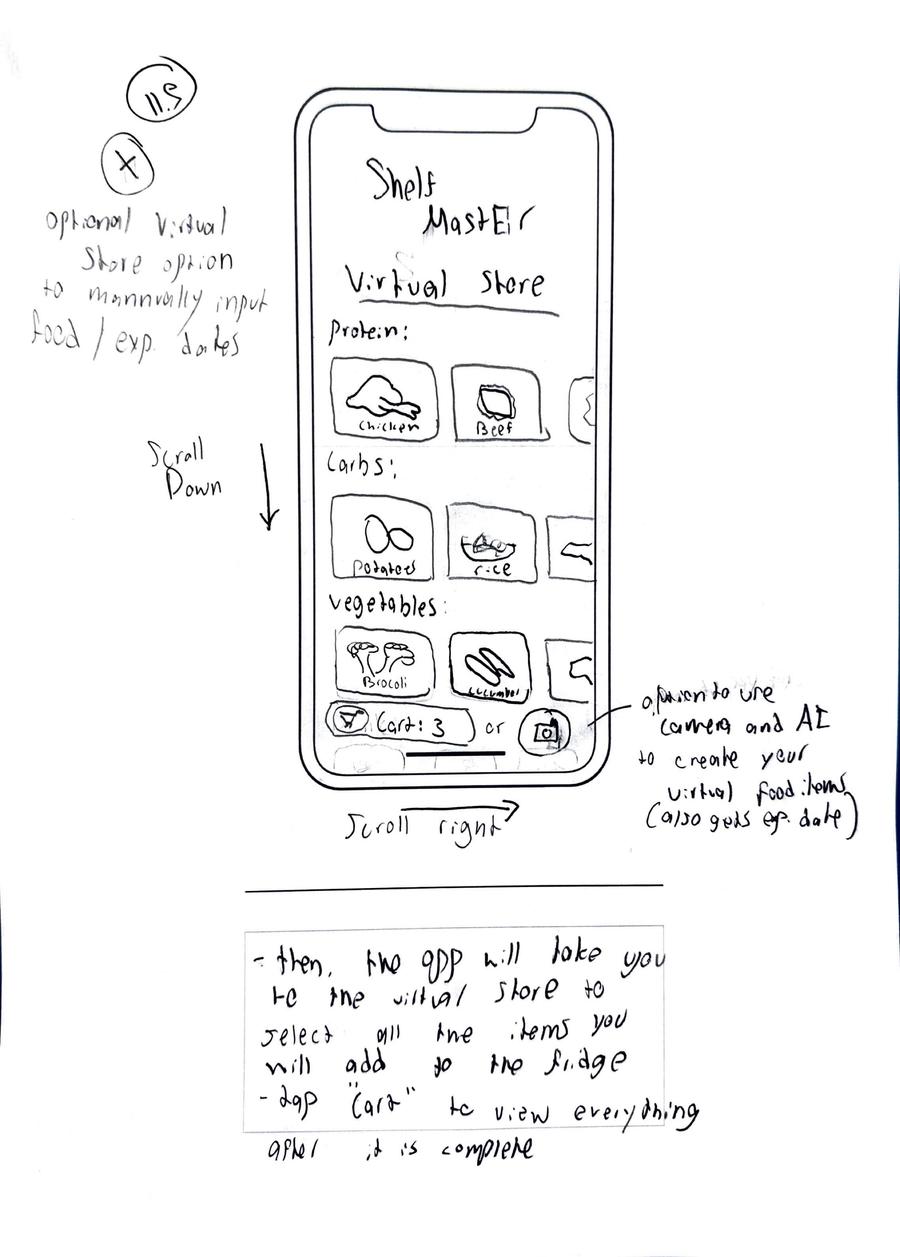 11.5
X
optional virtual
store option
to mannually input
food / exp. dates
Shelf
MastEr
Virtual Store
Protein:
Chicken
Beef
Carbs:
Potatoes
rice
vegetables:
Brocoli
cucumber
Cart: 3 or
Scroll
Down
option to use
camera and AI
to create your
virtual food items
(also gets exp. date)
Scroll right
- then, the app will take you
to the virtual store to
select all the items you
will add to the fridge
- tap "Cart" to view everything
after it is complete